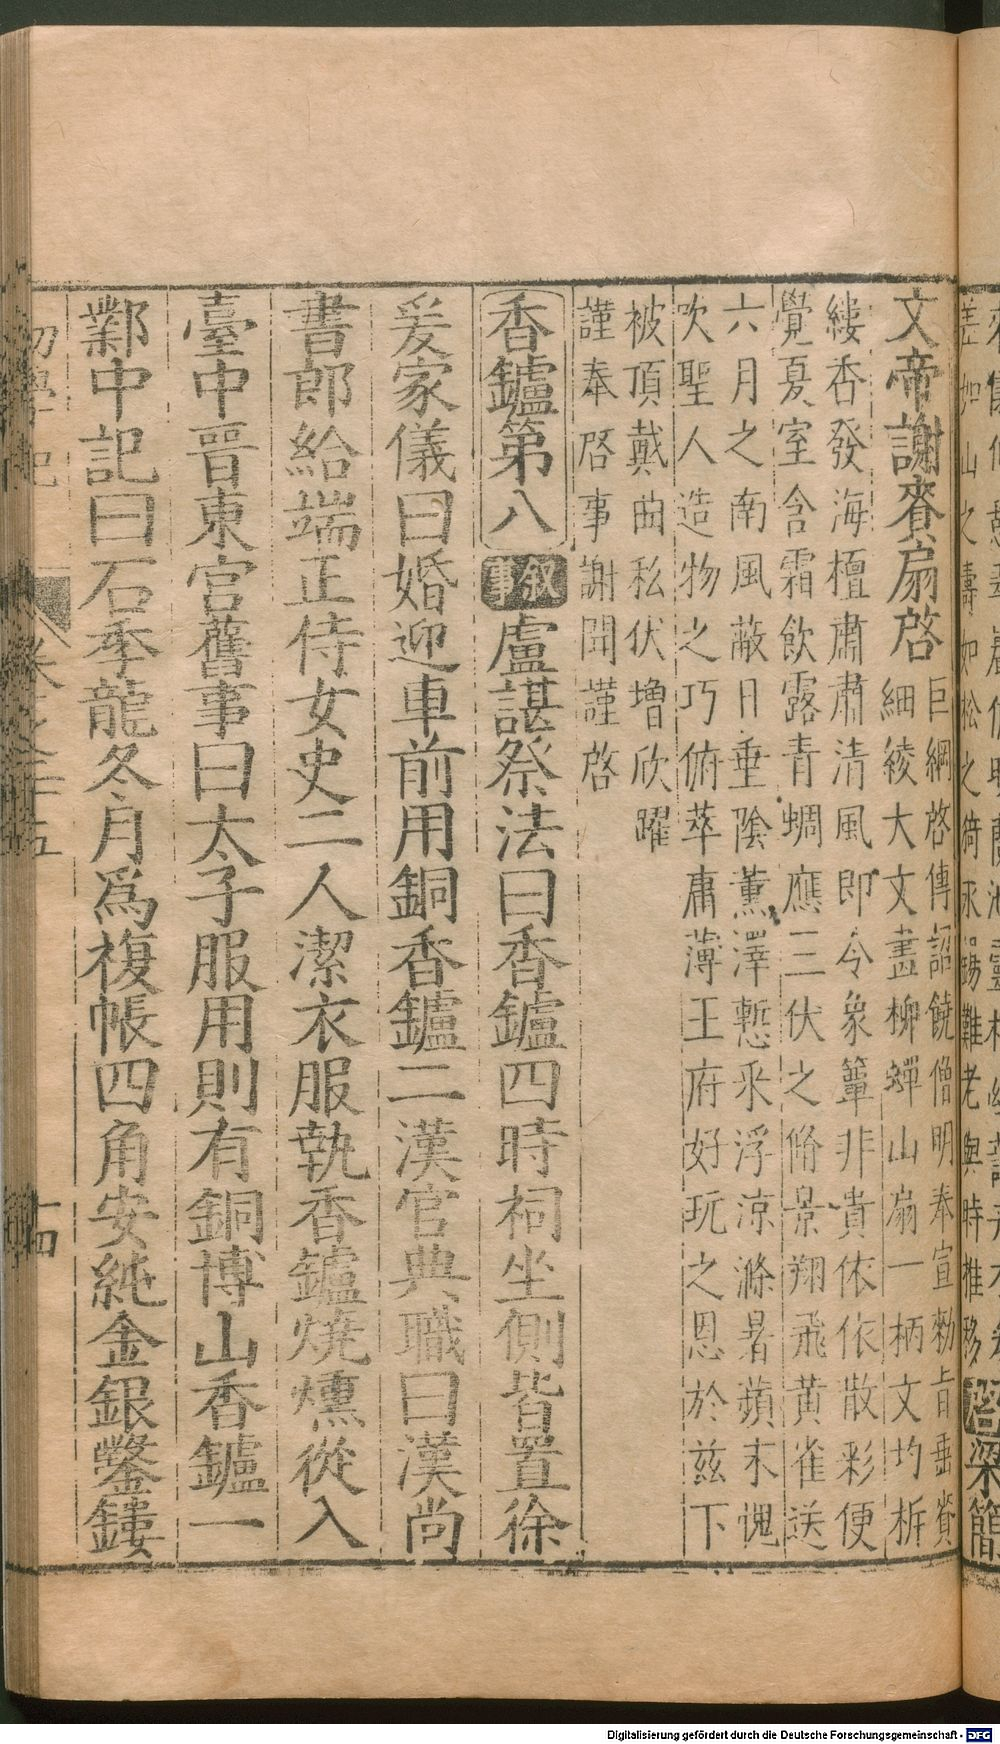 文帝謝賚扇啓
巨綱啓傳詔饒僧明奉宣勑旨垂賚
細綾大文畫柳蟬山扇一柄文圴㭊
縷香發海檀肅肅清風即令象簟非貴依依散彩便
覺夏室含霜飲露青蜩應三伏之脩景翔飛黃雀送
六月之南風蔽日垂陰薰澤慙采浮涼滌暑蘋末愧
吹聖人造物之巧俯萃庸薄王府好玩之恩於兹下
被頂戴曲私伏增欣躍
謹奉啓事謝聞謹啓
香鑪第八 叙事 盧諶祭法曰香鑪四時祠坐側皆置徐
爰家儀曰婚迎車前用銅香鑪二漢官典職曰漢尚
書郎給端正侍女史二人潔衣服執香鑪燒燻從入
臺中晉東宮舊事曰太子服用則有銅博山香鑪一
鄴中記曰石季龍冬月爲複帳四角安純金銀鑿鏤
初學記 卷之二十五 十四
Digitalisierung gefördert durch die Deutsche Forschungsgemeinschaft - DFG